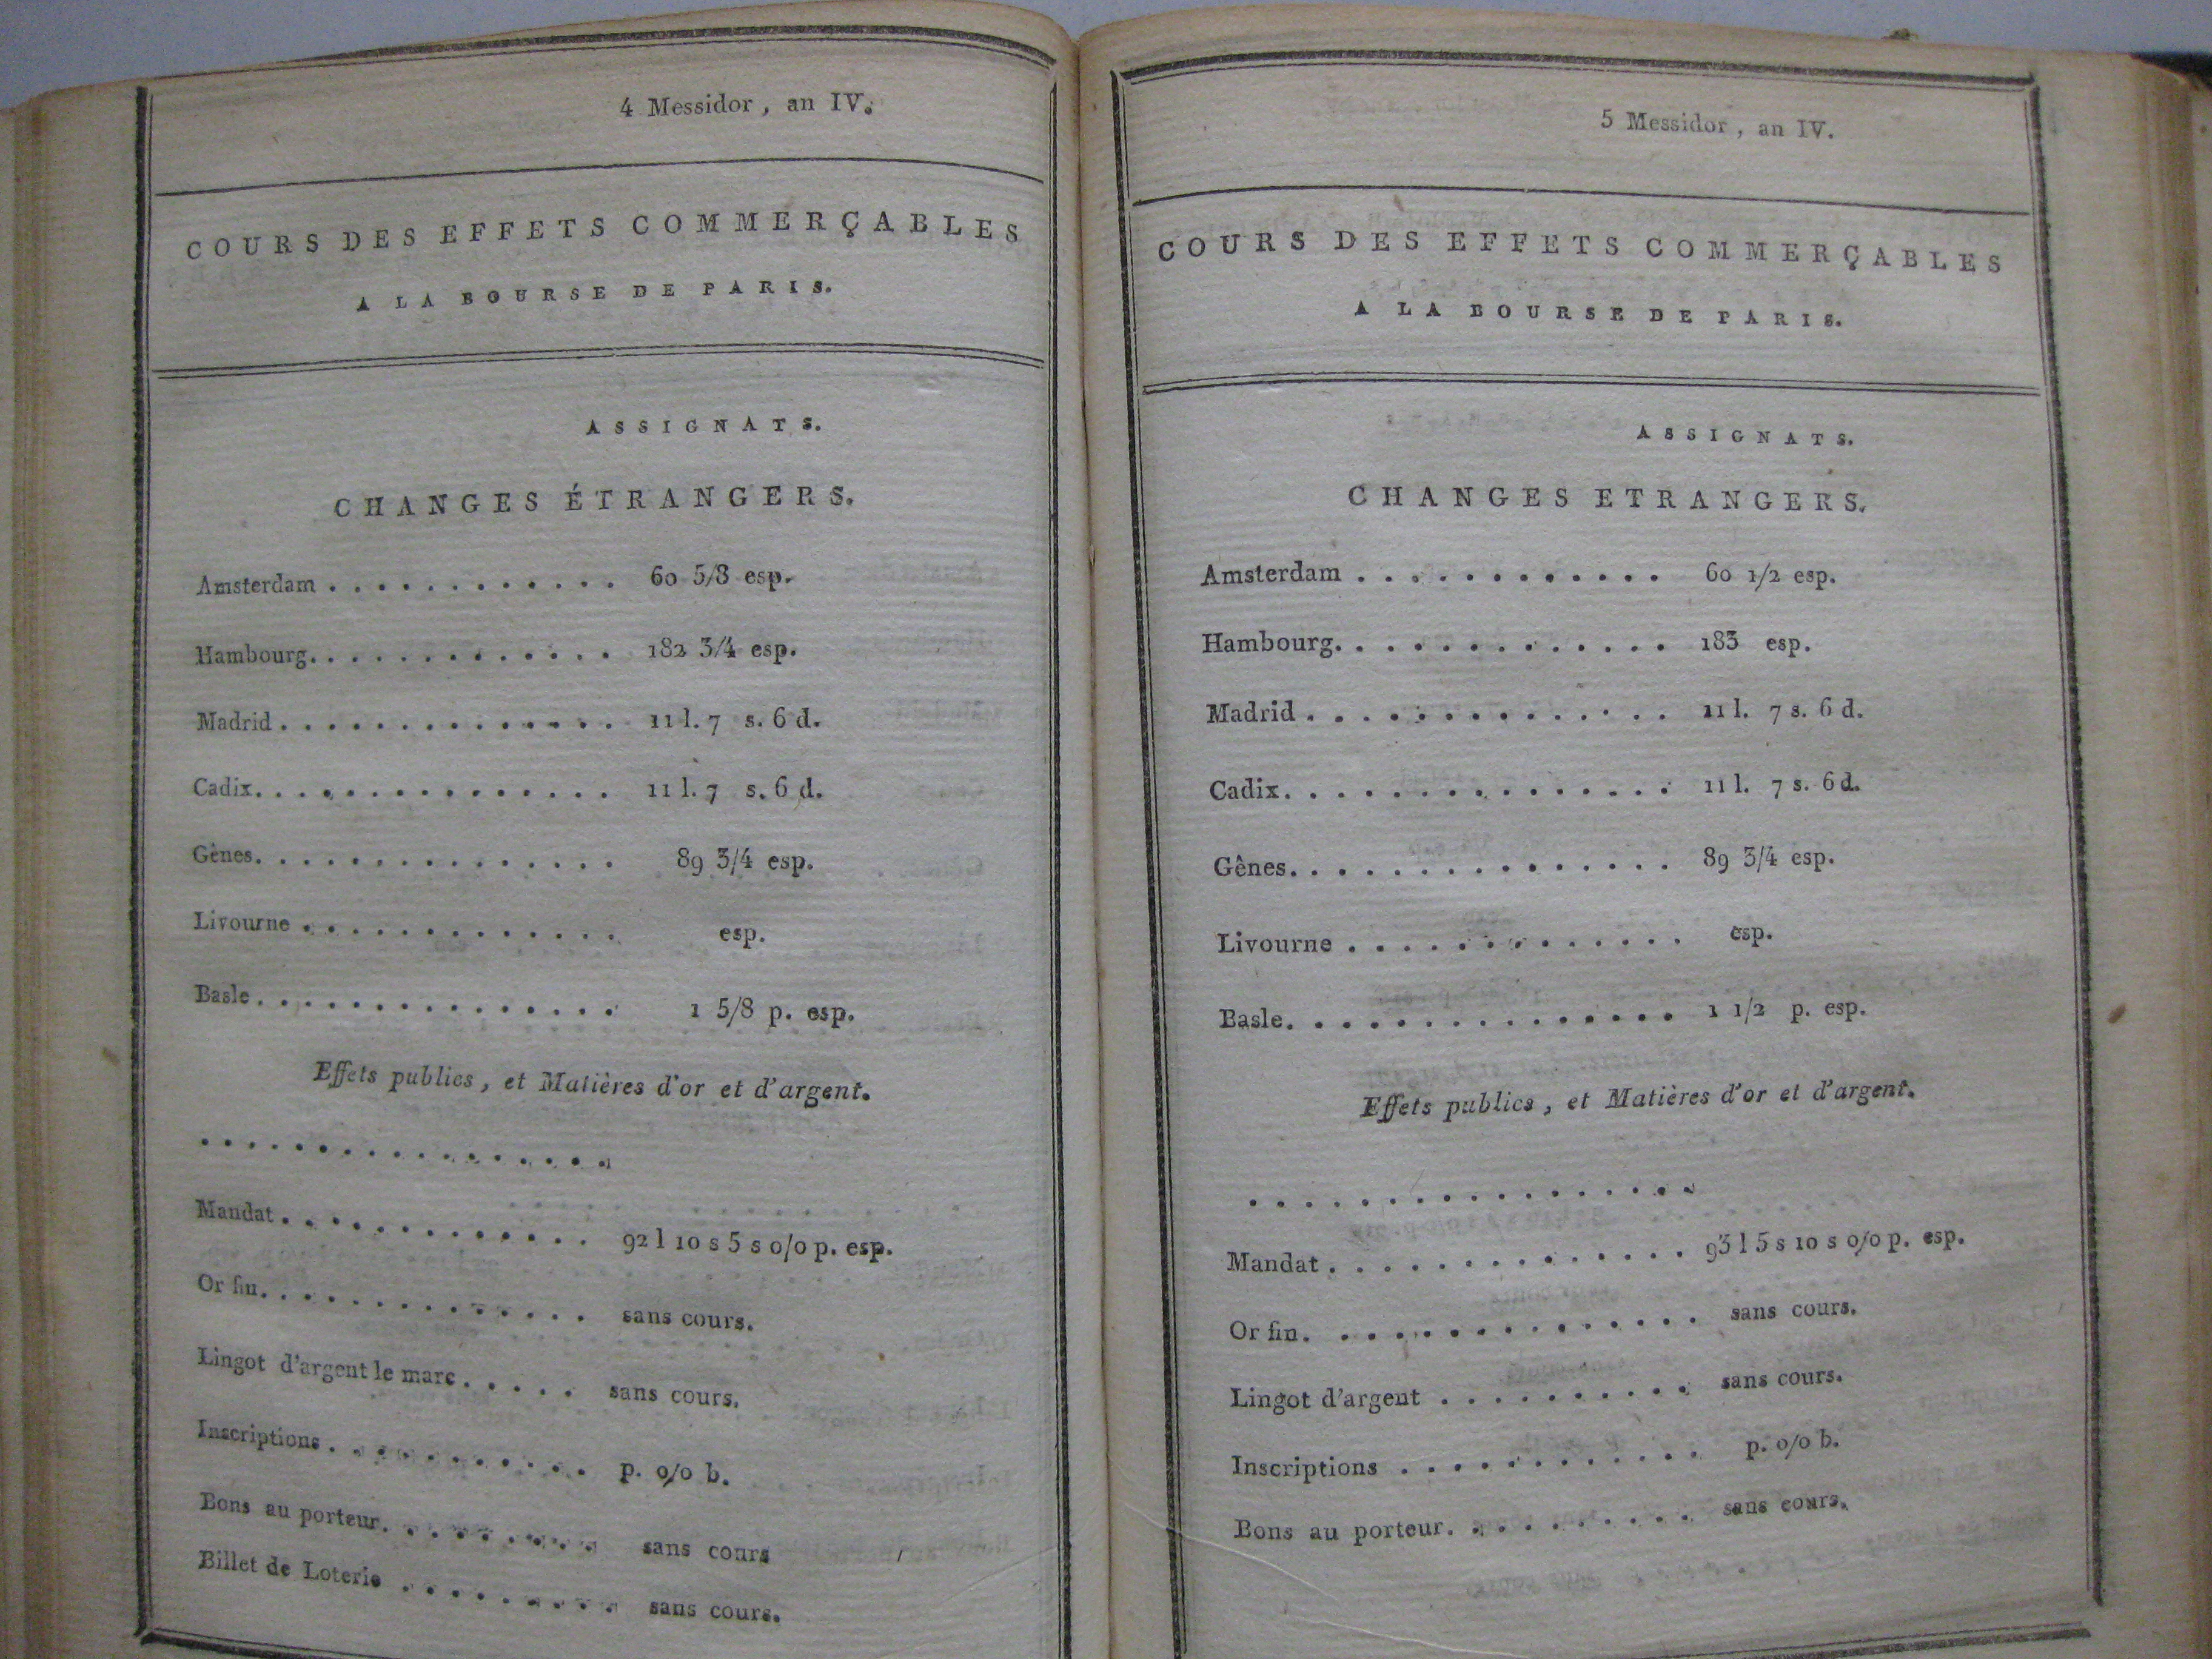 4 Messidor, an IV.
COURS DES EFFETS COMMERÇABLES
A LA BOURSE DE PARIS.
ASSIGNATS.
CHANGES ÉTRANGERS.
Amsterdam . . . . . . . . . . . . 60 5/8 esp.
Hambourg. . . . . . . . . . . . . 182 3/4 esp.
Madrid . . . . . . . . . . . . . . 11 l. 7 s. 6 d.
Cadix. . . . . . . . . . . . . . . 11 l. 7 s. 6 d.
Gênes. . . . . . . . . . . . . . . 89 3/4 esp.
Livourne . . . . . . . . . . . . . esp.
Basle. . . . . . . . . . . . . . . 1 5/8 p. esp.
Effets publics, et Matières d'or et d'argent.
. . . . . . . . . . . . . . . . .
Mandat. . . . . . . . . . . . . 92 l 10 s 5 s o/o p. esp.
Or fin. . . . . . . . . . . . . . sans cours.
Lingot d'argent le marc. . . . . sans cours.
Inscriptions . . . . . . . . . . . p. o/o b.
Bons au porteur. . . . . . . . . sans cours
Billet de Loterie . . . . . . . . . sans cours.
5 Messidor, an IV.
COURS DES EFFETS COMMERÇABLES
A LA BOURSE DE PARIS.
ASSIGNATS.
CHANGES ETRANGERS.
Amsterdam . . . . . . . . . . . . 60 1/2 esp.
Hambourg. . . . . . . . . . . . . 183 esp.
Madrid . . . . . . . . . . . . . . 11 l. 7 s. 6 d.
Cadix. . . . . . . . . . . . . . . 11 l. 7 s. 6 d.
Gênes. . . . . . . . . . . . . . . 89 3/4 esp.
Livourne . . . . . . . . . . . . . esp.
Basle. . . . . . . . . . . . . . . 1 1/2 p. esp.
Effets publics, et Matières d'or et d'argent.
. . . . . . . . . . . . . . . . .
Mandat . . . . . . . . . . . . . . 93 l 5 s 10 s o/o p. esp.
Or fin. . . . . . . . . . . . . . . sans cours.
Lingot d'argent . . . . . . . . . . sans cours.
Inscriptions . . . . . . . . . . . . p. o/o b.
Bons au porteur. . . . . . . . . . sans cours.